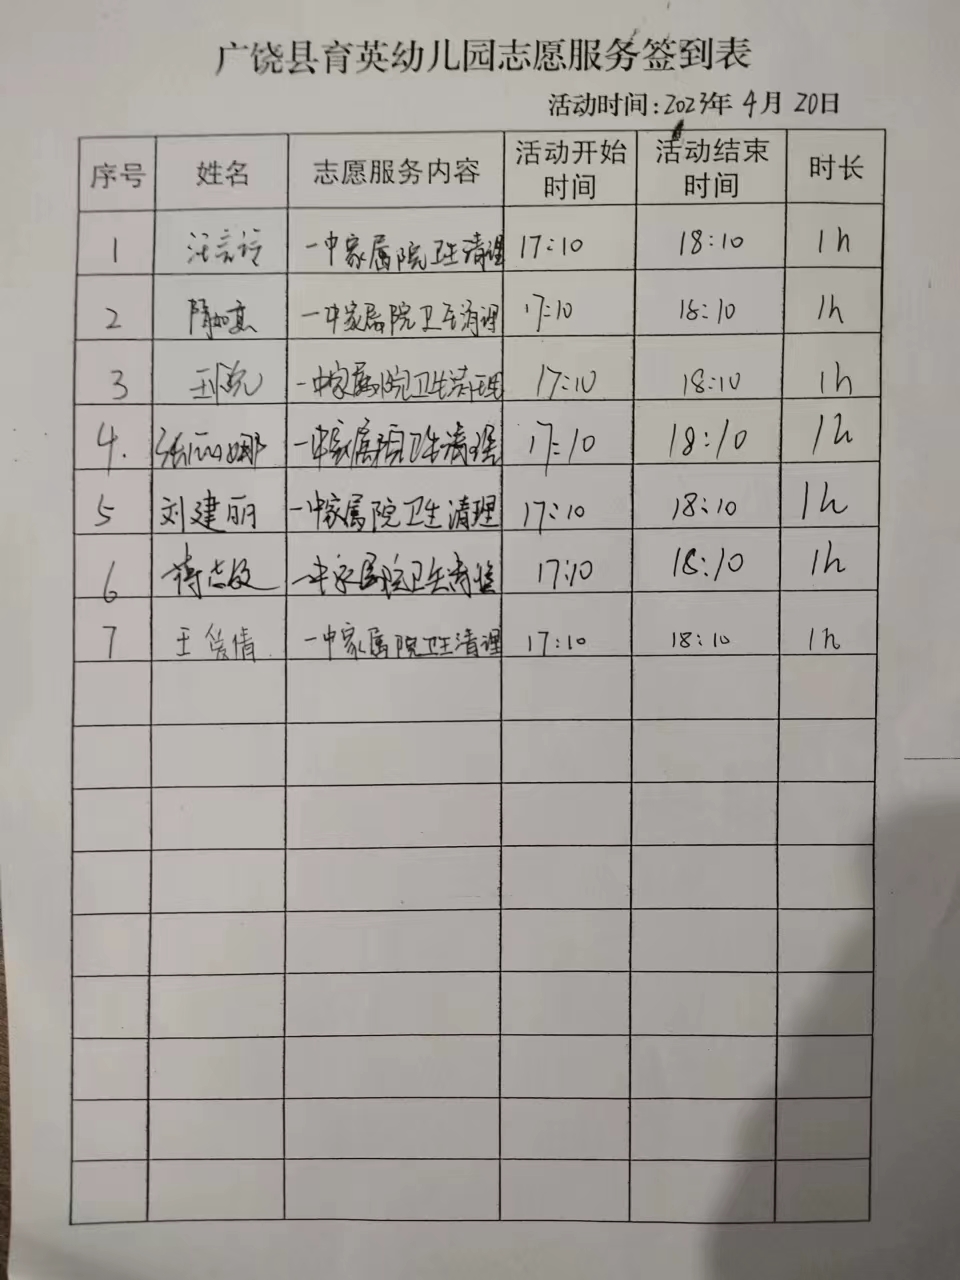 广饶县育英幼儿园志愿服务签到表
活动时间:2023年4月20日
序号 姓名 志愿服务内容 活动开始时间 活动结束时间 时长
1 一中家属院卫生清理 17:10 18:10 1h
2 一中家属院卫生清理 17:10 18:10 1h
3 一中家属院卫生清理 17:10 18:10 1h
4. 一中家属院卫生清理 17:10 18:10 1h
5 刘建丽 一中家属院卫生清理 17:10 18:10 1h
6 蒋志敏 一中家属院卫生清理 17:10 18:10 1h
7 王 倩 一中家属院卫生清理 17:10 18:10 1h